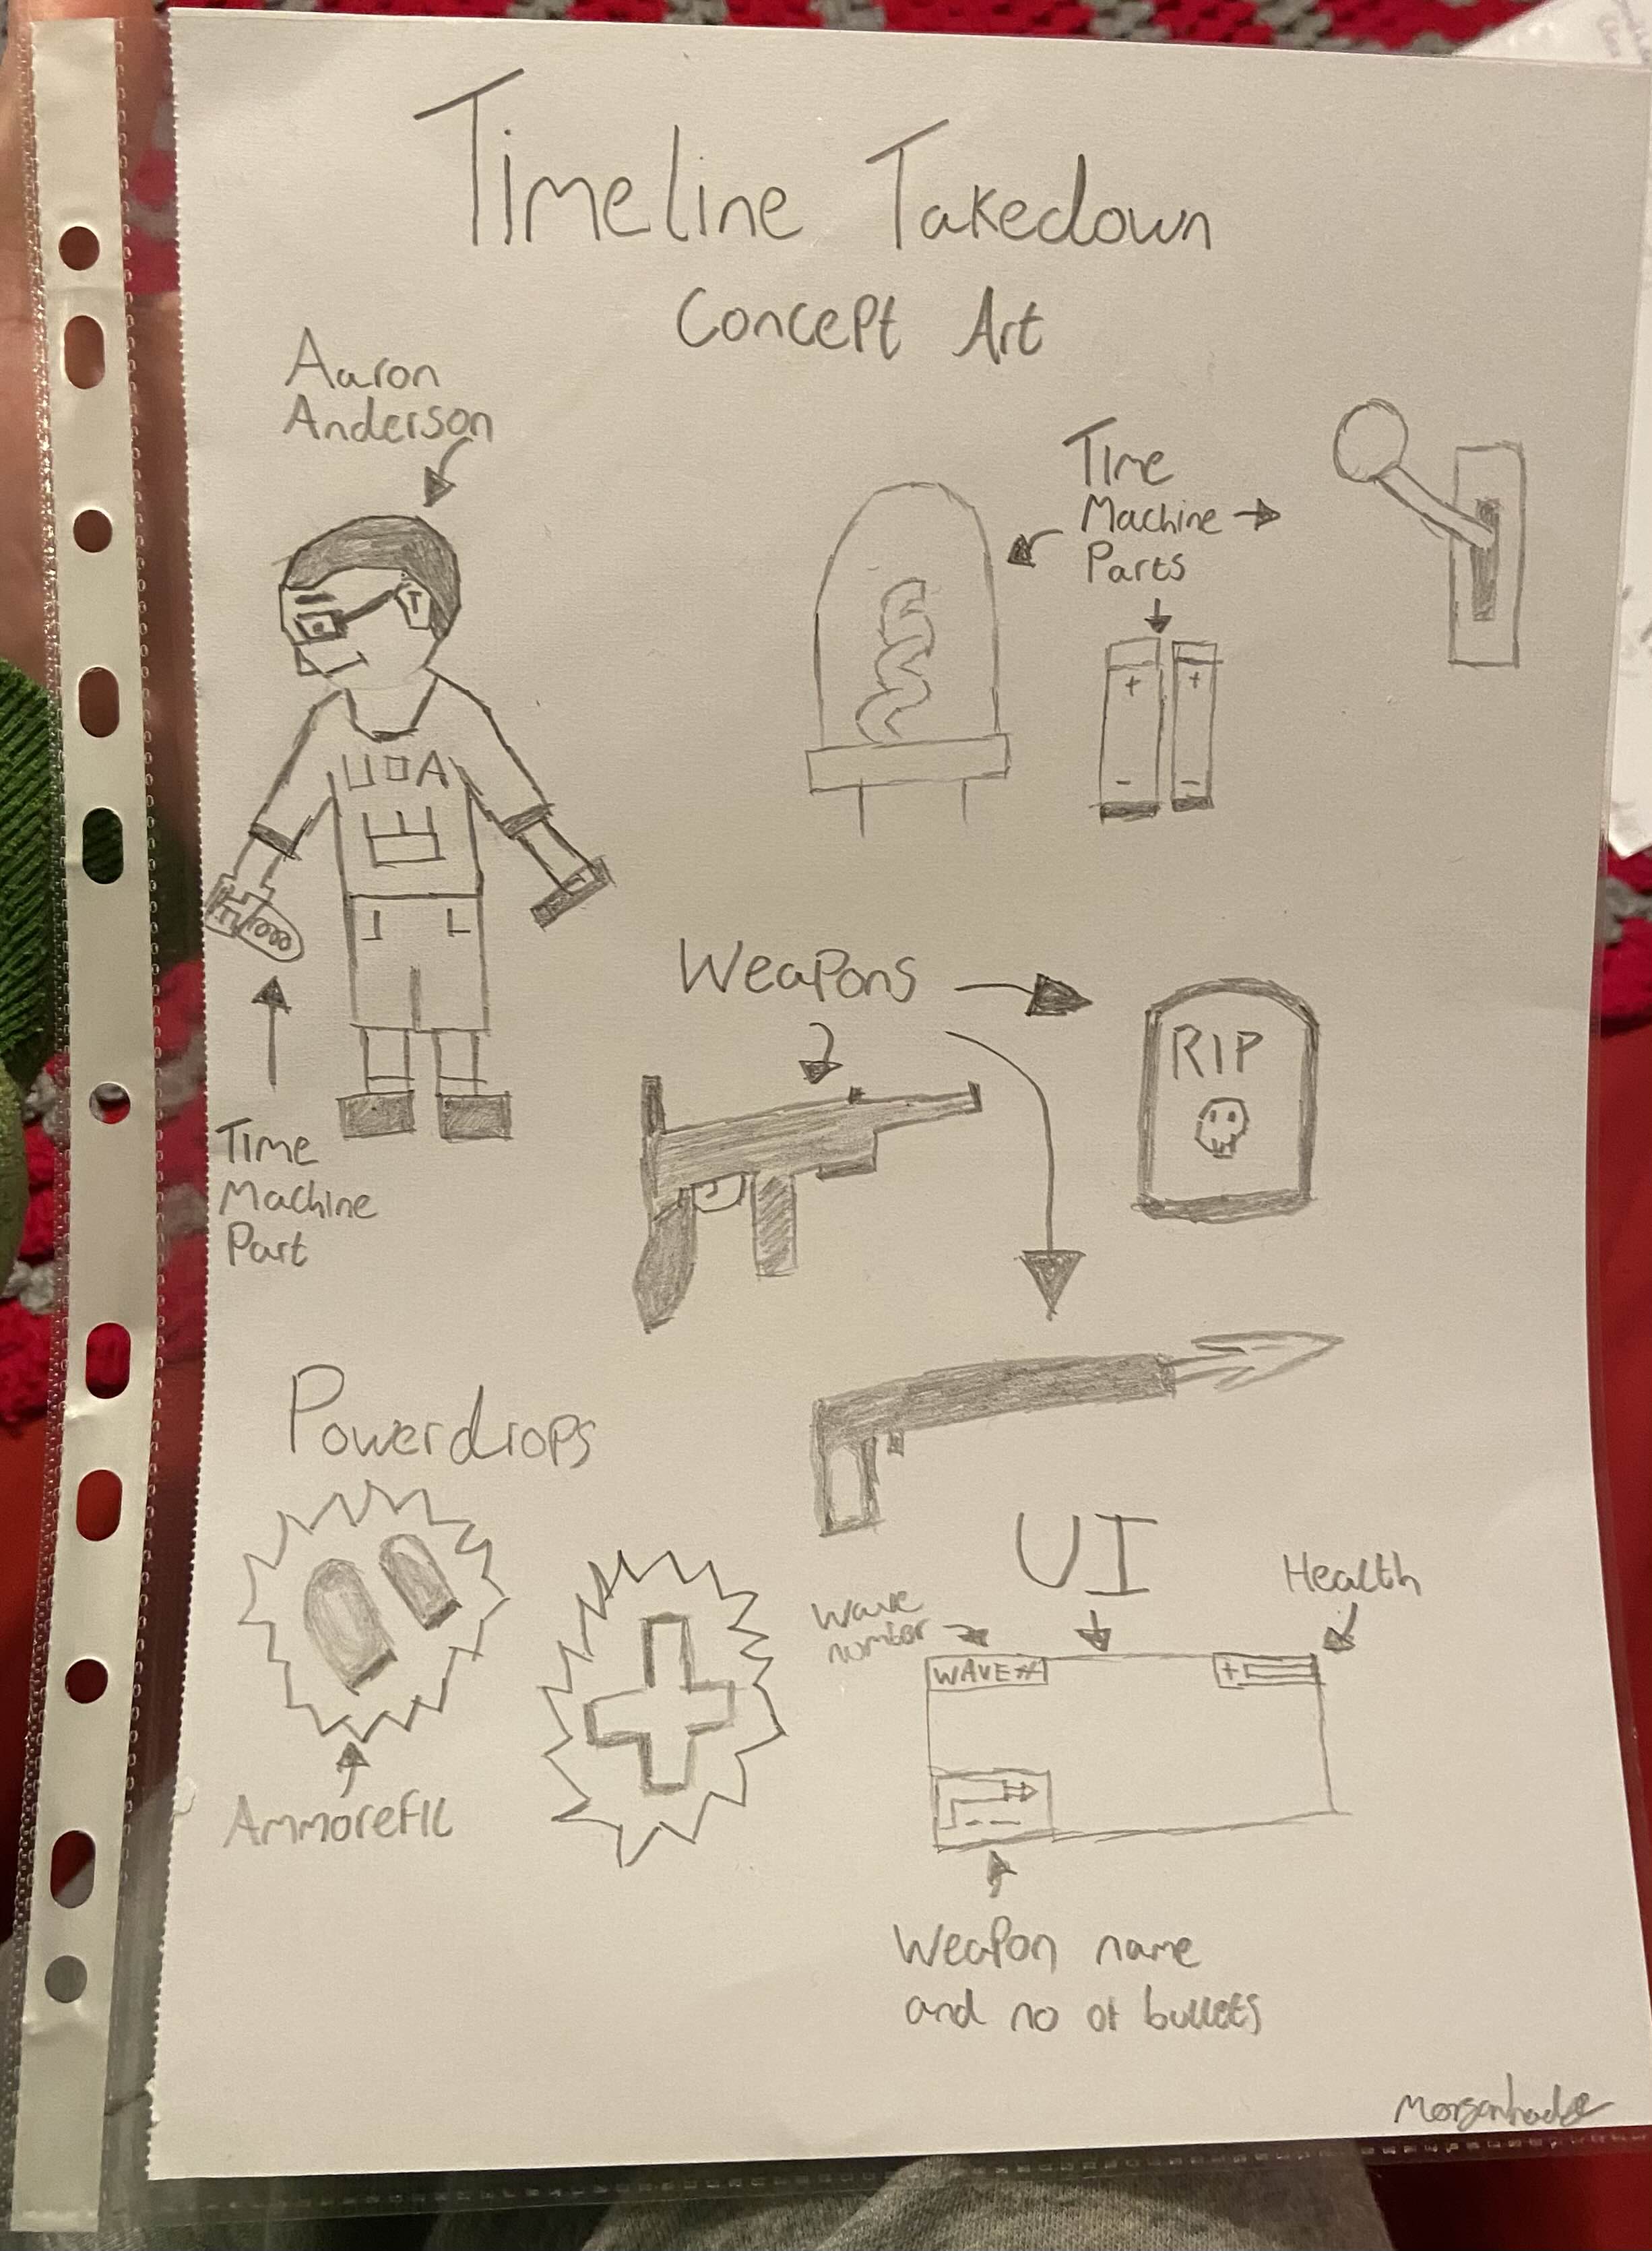 Timeline Takedown
Concept Art
Aaron
Anderson
Time
Machine
Parts
+
+
-
-
Time
Machine
Part
Weapons
RIP
Powerdrops
Ammorefil
UI
Wave
number
Health
WAVE#
+
Weapon name
and no of bullets